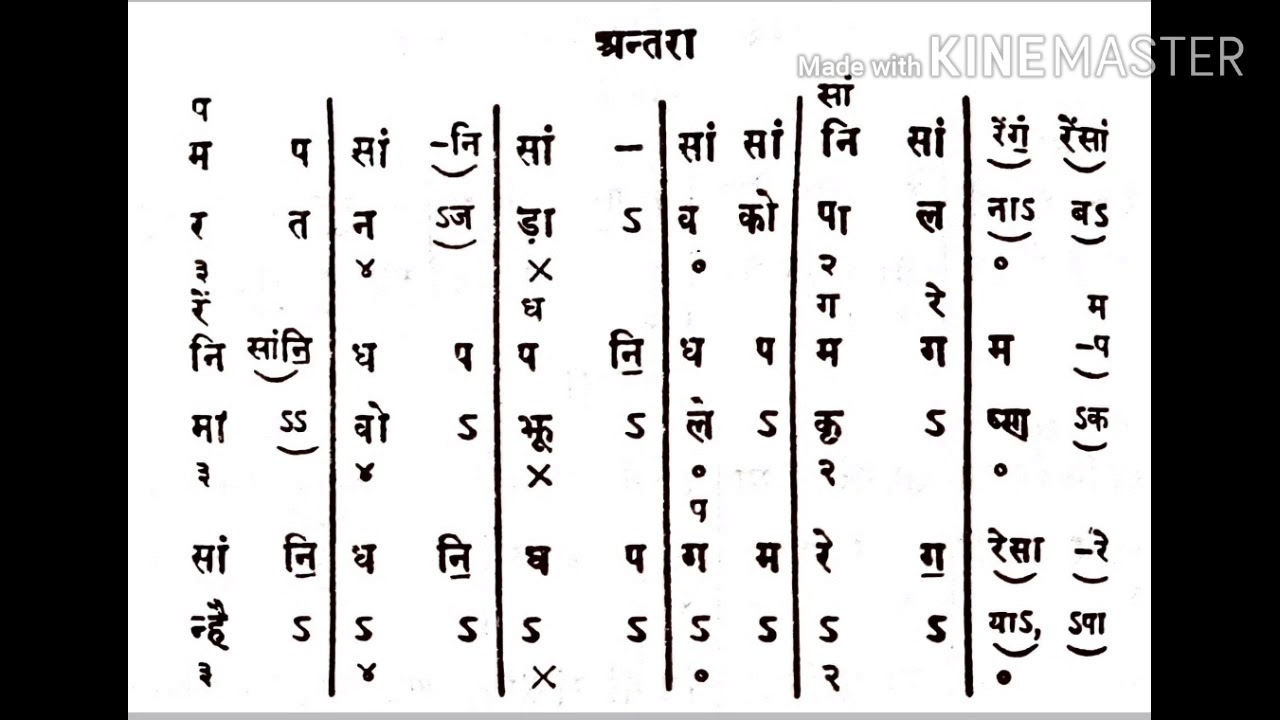 अन्तरा
Made with KINEMASTER
प सां
म प सां -नि सां - सां सां नि सां रेंगं॒ रेंसां
र त न ऽज ड़ा ऽ व को पा ल नाऽ बऽ
३ ४ × ० २ ०
रें ध ग रे म
नि सांनि॒ ध प प नि॒ ध प म ग म -प
मा ऽऽ वो ऽ झू ऽ ले ऽ कृ ऽ ष्ण ऽक
३ ४ × ० २ ०
प
सां नि॒ ध नि॒ ध प ग म रे ग॒ रेसा -रे
न्है ऽ ऽ ऽ ऽ ऽ ऽ ऽ ऽ ऽ याऽ, ऽपा
३ ४ × ० २ ०